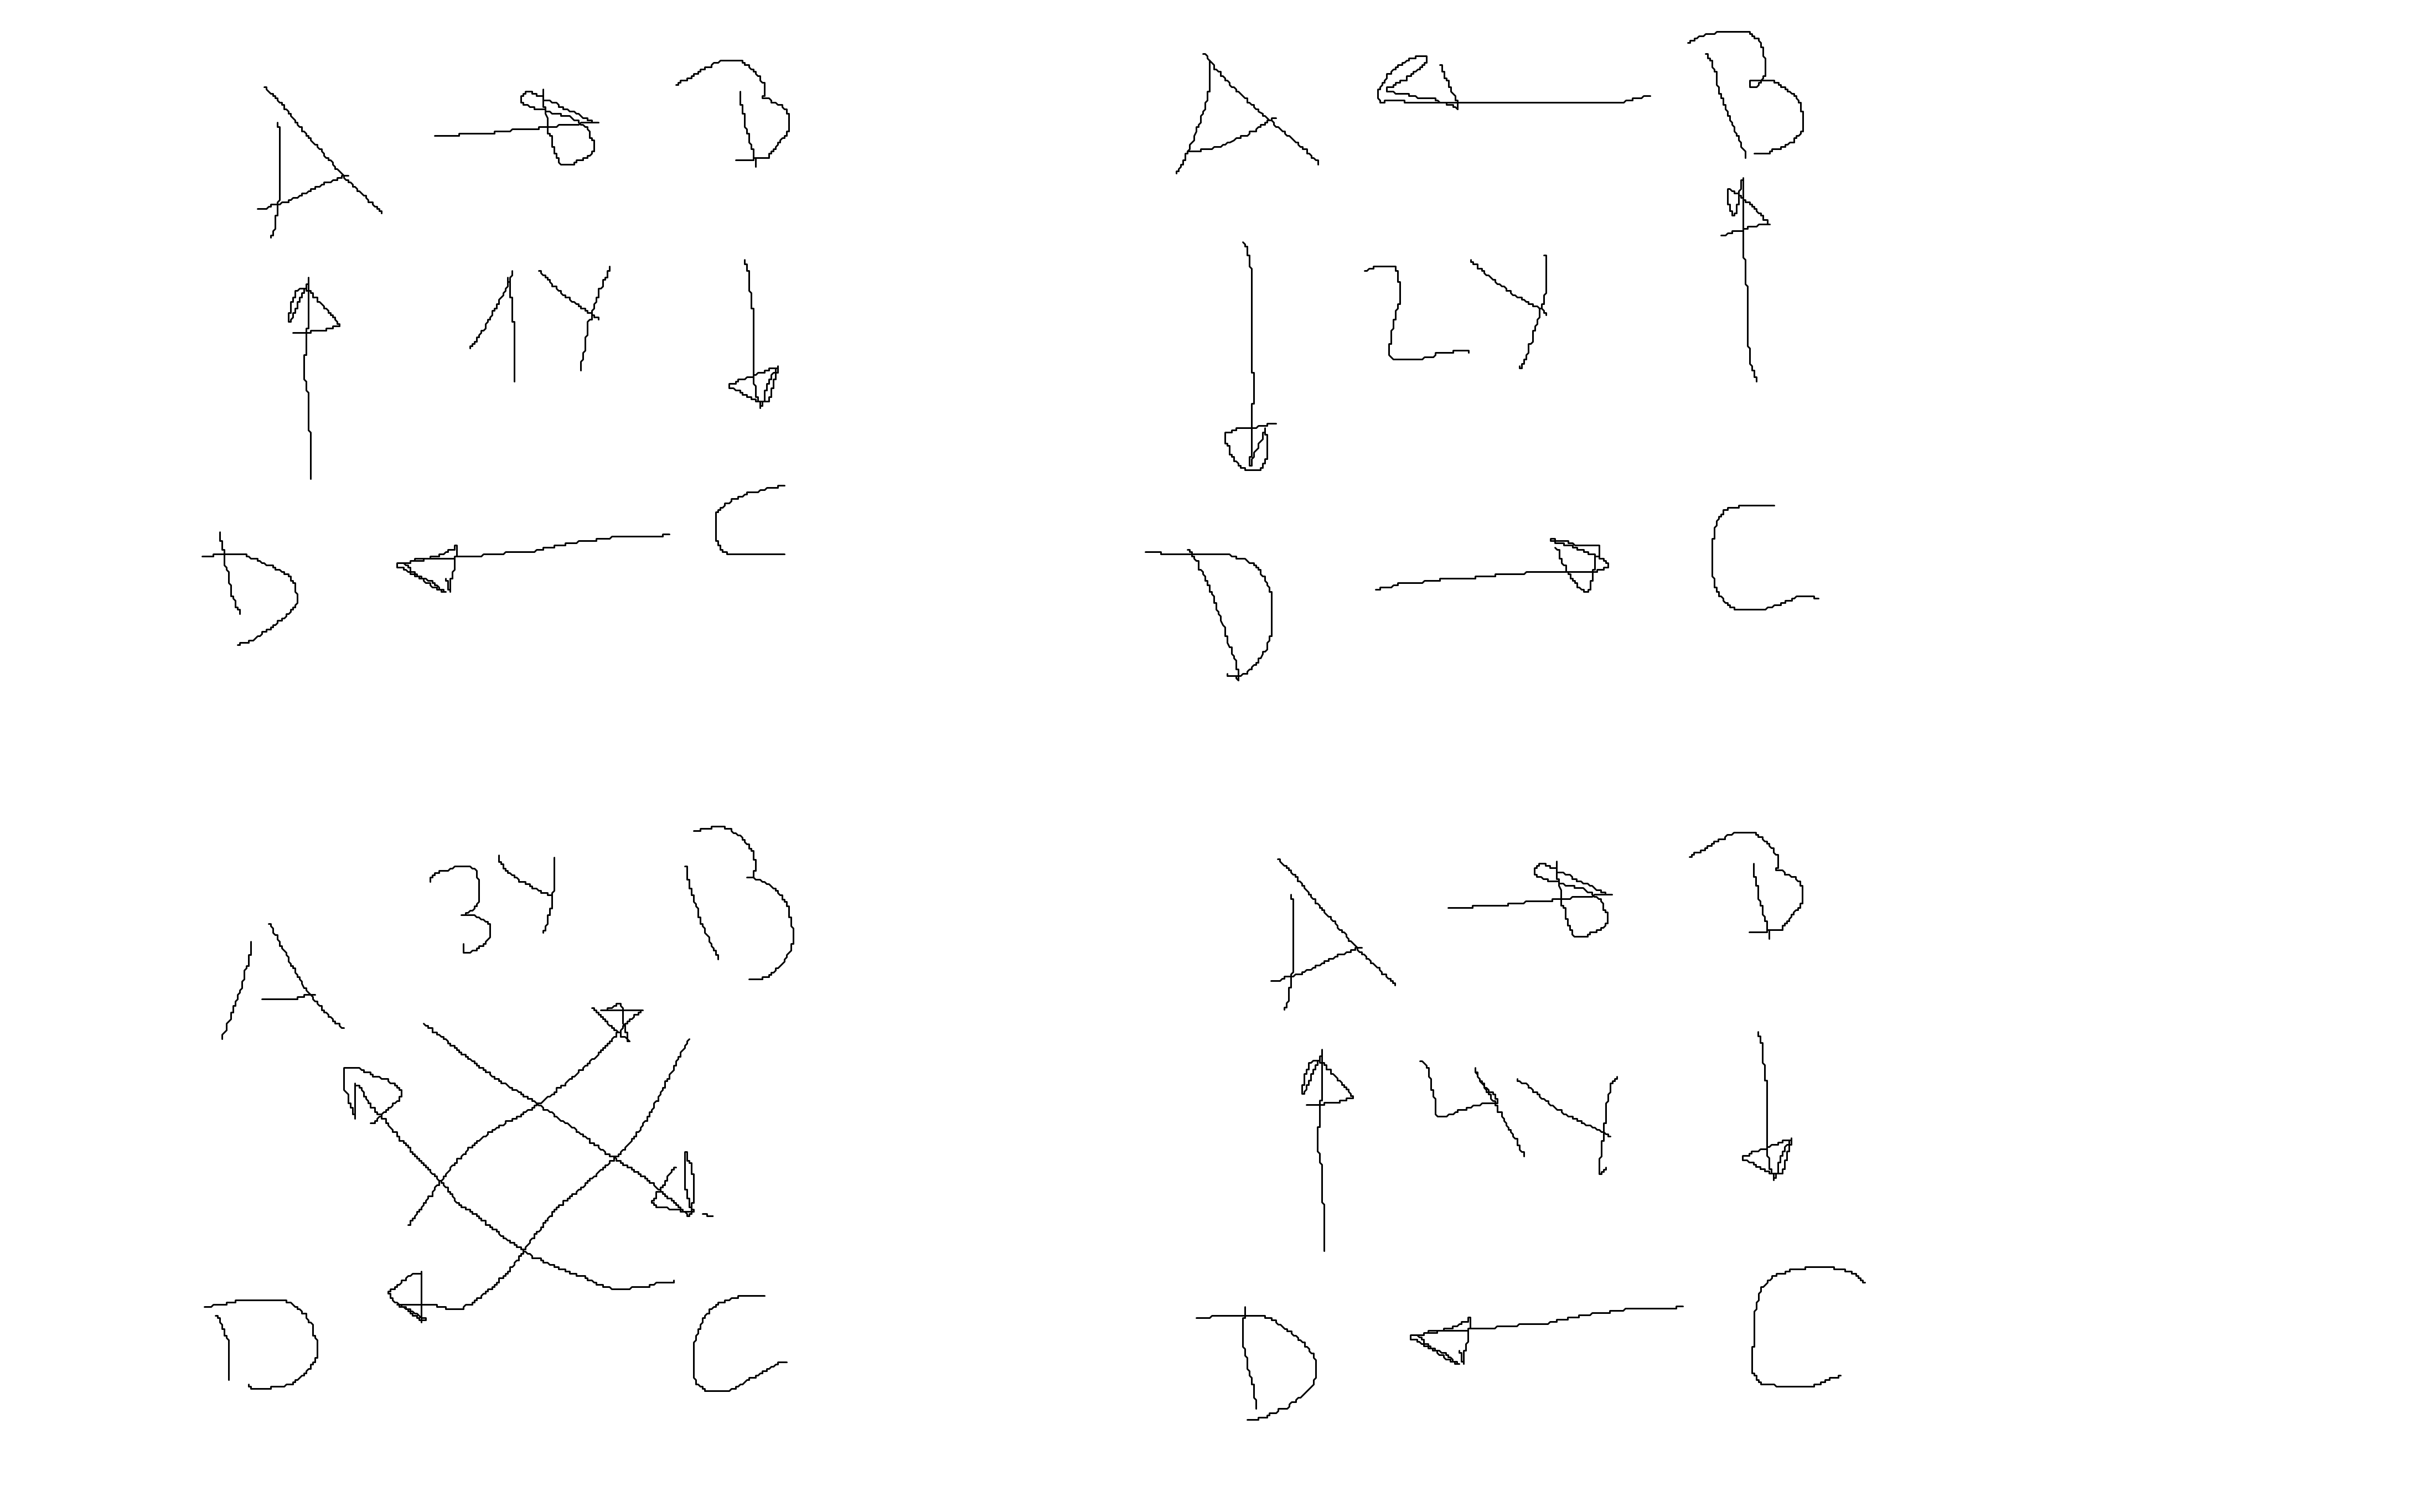 A B
1Y
D C
A B
2Y
D C
3Y
A B
D C
A B
4Y
D C